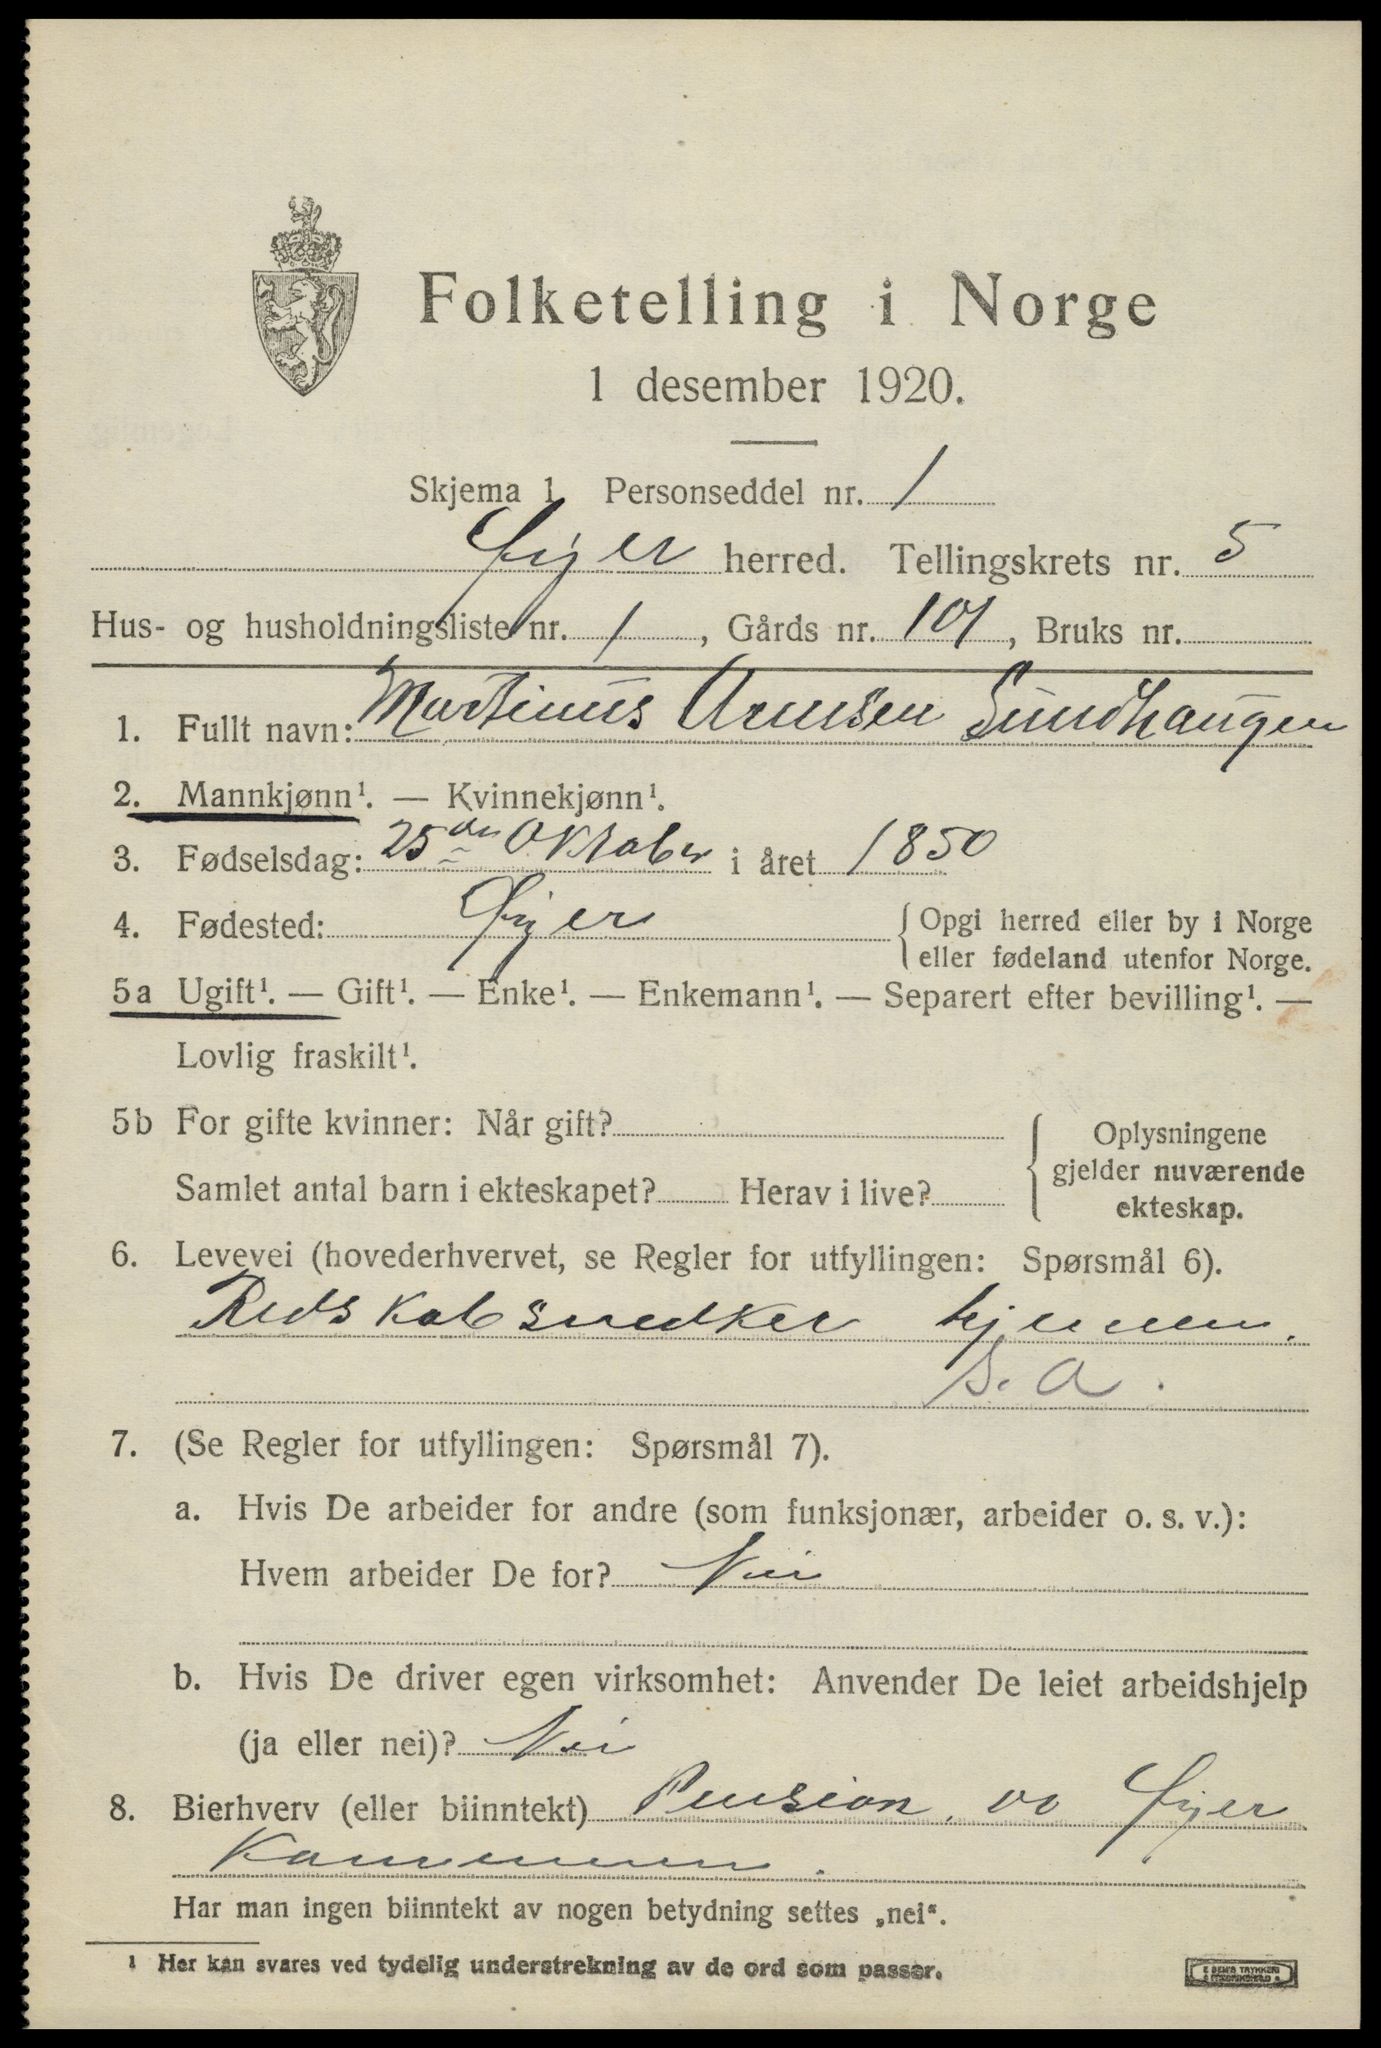 Folketelling i Norge
1 desember 1920.
Skjema 1 Personseddel nr. 1
Øyer herred. Tellingskrets nr. 5
Hus- og husholdningsliste nr. 1, Gårds nr. 101, Bruks nr.
1. Fullt navn: Martinus Arnesen Sundhaugen
2. Mannkjønn¹. — Kvinnekjønn¹.
3. Fødselsdag: 25de Oktober i året 1850
4. Fødested: Øyer {Opgi herred eller by i Norge
eller fødeland utenfor Norge.
5a Ugift¹. — Gift¹. — Enke¹. — Enkemann¹. — Separert efter bevilling¹. —
Lovlig fraskilt¹.
5b For gifte kvinner: Når gift? { Oplysningene
gjelder nuværende
Samlet antal barn i ekteskapet? Herav i live?
ekteskap.
6. Levevei (hovederhvervet, se Regler for utfyllingen: Spørsmål 6).
Redskabsnedker hjemme.
S. A.
7. (Se Regler for utfyllingen: Spørsmål 7).
a. Hvis De arbeider for andre (som funksjonær, arbeider o. s. v.):
Hvem arbeider De for? Nei
b. Hvis De driver egen virksomhet: Anvender De leiet arbeidshjelp
(ja eller nei)? Nei
8. Bierhverv (eller biinntekt) Pension av Øyer
Kommune.
Har man ingen biinntekt av nogen betydning settes „nei“.
¹ Her kan svares ved tydelig understrekning av de ord som passer.